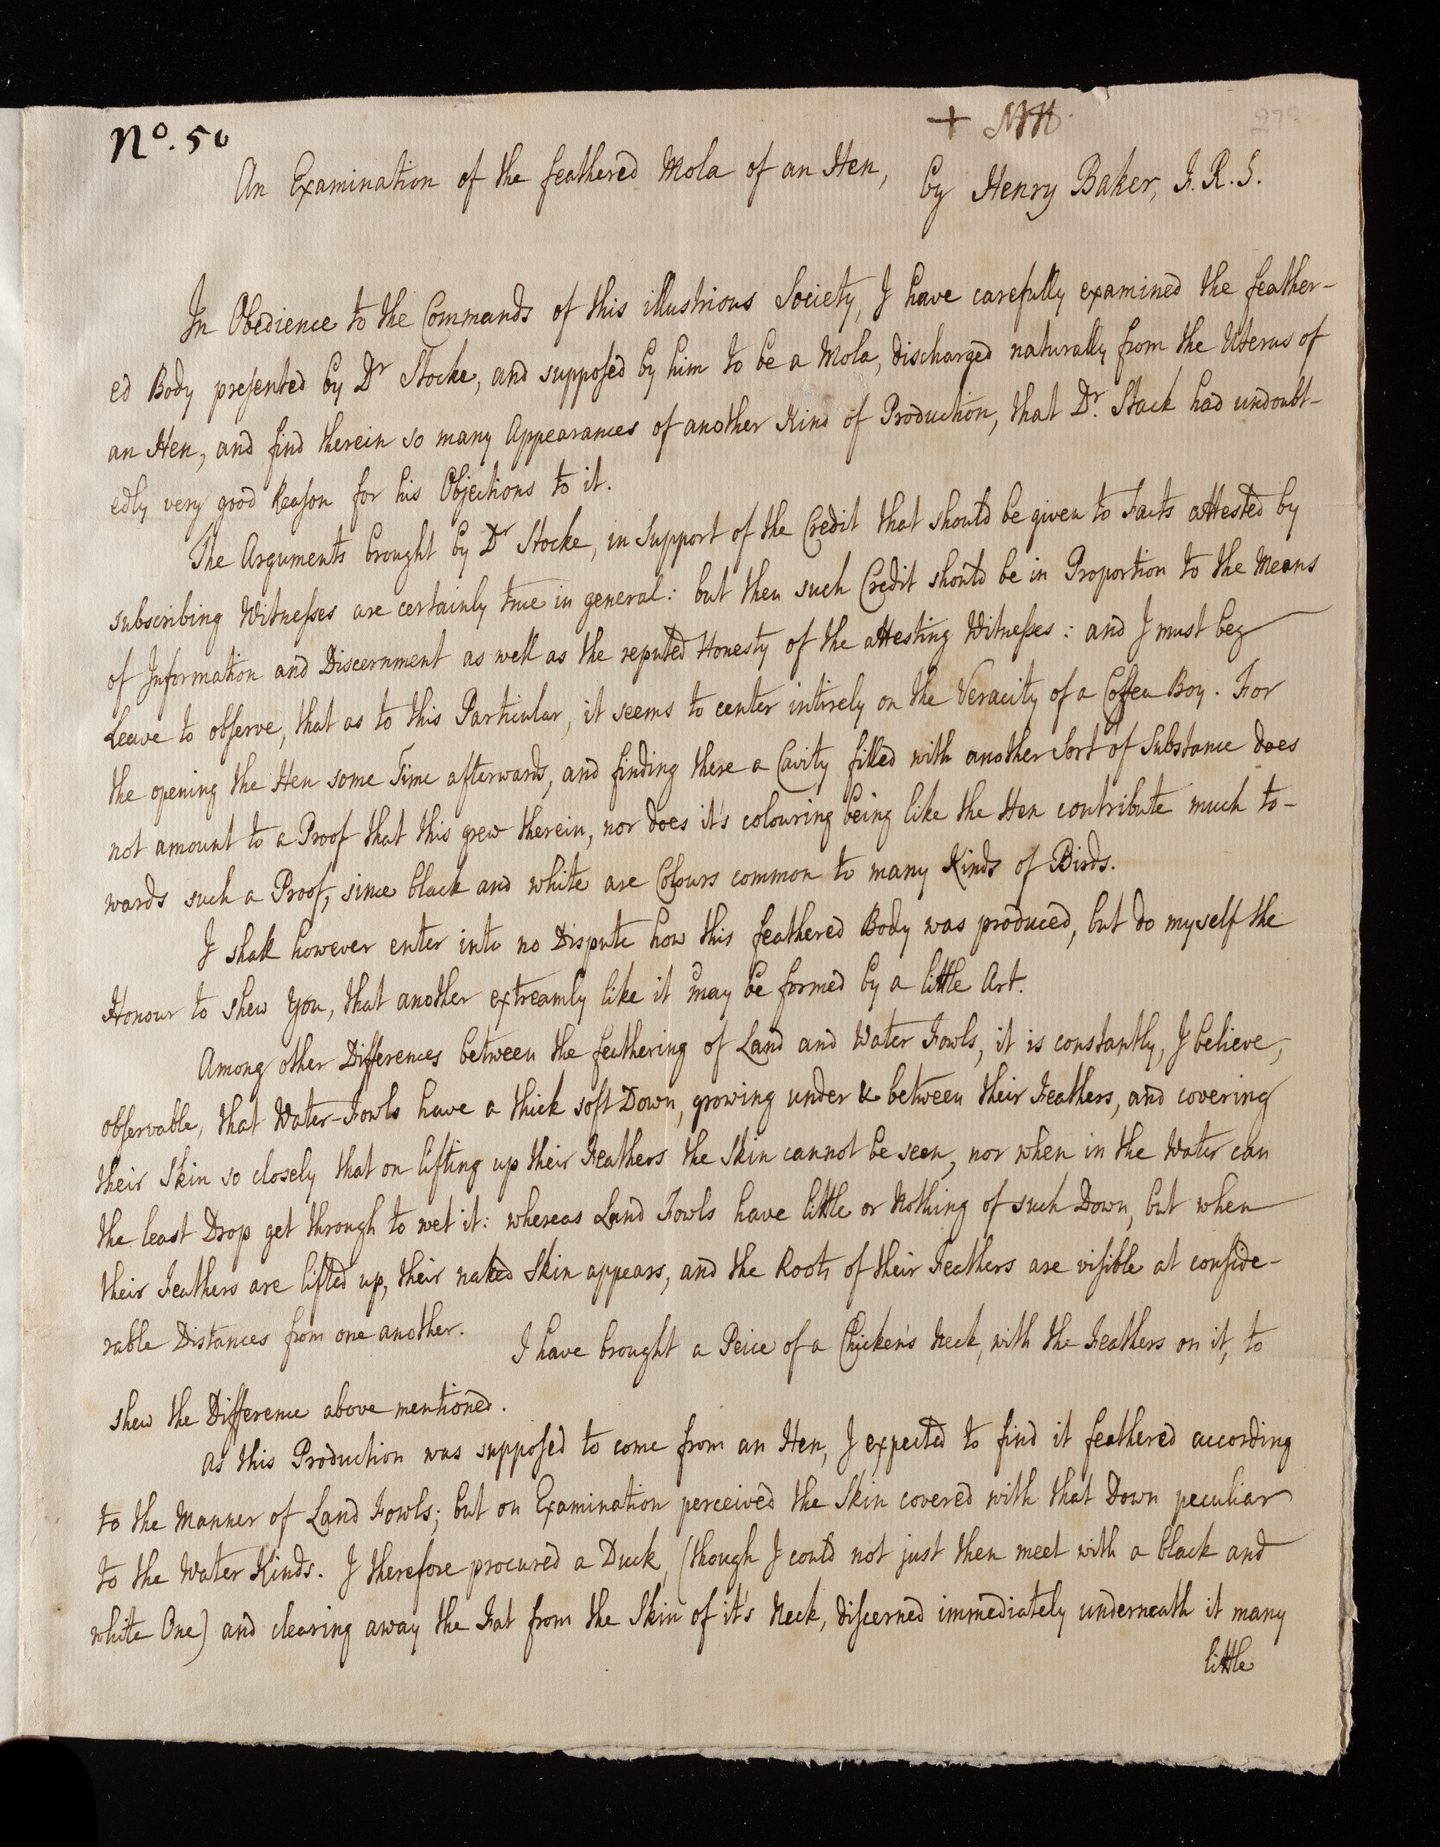 No. 50
+ MH.
An Examination of the feathered Mola of an Hen, by Henry Baker, F.R.S.
In Obedience to the Commands of this illustrious Society, I have carefully examined the feather-
ed Body presented by Dr Stocke, and supposed by him to be a Mola, discharged naturally from the Uterus of
an Hen, and find therein so many Appearances of another Kind of Production, that Dr. Stack had undoubt-
edly very good Reason for his Objections to it.
The Arguments brought by Dr Stocke, in Support of the Credit that should be given to Facts attested by
subscribing Witnesses are certainly true in general: but then such Credit should be in Proportion to the Means
of Information and Discernment as well as the reputed Honesty of the attesting Witnesses: and I must beg
Leave to observe, that as to this Particular, it seems to center intirely on the Veracity of a Coffea Boy. For
the opening the Hen some Time afterwards, and finding there a Cavity filled with another Sort of Substance does
not amount to a Proof that this grew therein, nor does it's colouring being like the Hen contribute much to-
wards such a Proof, since black and white are Colours common to many Kinds of Birds.
I shall however enter into no Dispute how this feathered Body was produced, but do myself the
Honour to shew You, that another extreamly like it may be formed by a little Art.
Among other Differences between the feathering of Land and Water Fowls, it is constantly, I believe,
observable, that Water-Fowls have a thick soft Down, growing under & between their Feathers, and covering
their Skin so closely that on lifting up their Feathers the Skin cannot be seen, nor when in the Water can
the least Drop get through to wet it: whereas Land Fowls have little or Nothing of such Down, but when
their Feathers are lifted up, their naked Skin appears, and the Roots of their Feathers are visible at conside-
rable Distances from one another. I have brought a Peice of a Chicken's Neck, with the Feathers on it, to
shew the Difference above mentioned.
As this Production was supposed to come from an Hen, I expected to find it feathered according
to the Manner of Land Fowls; but on Examination perceived the Skin covered with that Down peculiar
to the Water Kinds. I therefore procured a Duck, (though I could not just then meet with a black and
white One) and clearing away the Fat from the Skin of it's Neck, discerned immediately underneath it many
little